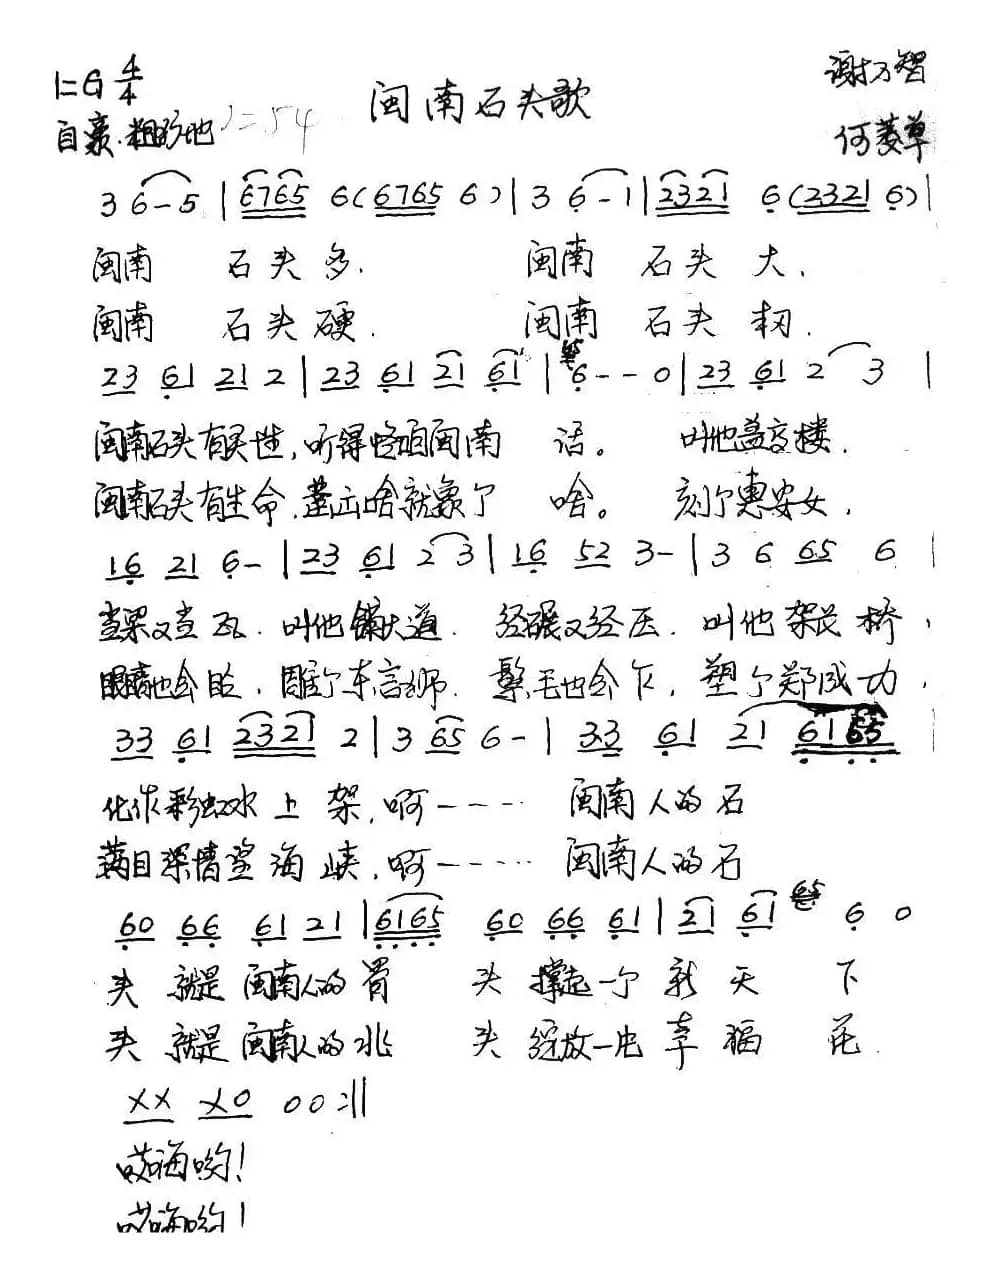 1=G 4/4 闽南石头歌 谢万智
自豪.粗犷地 ♩=54 何菱草
3 6-5 | 6765 6(6765 6) | 3 6-1 | 2321 6(2321 6) |
闽南 石头多. 闽南 石头大、
闽南 石头硬. 闽南 石头韧.
23 61 21 2 | 23 61 21 61 | 65 6--0 | 23 61 2 3 |
闽南石头有灵性,听得咱闽南 话。 叫他盖高楼.
闽南石头有生命.凿出啥就象了 啥。 刻个惠安女,
16 21 6- | 23 61 2 3 | 16 52 3- | 3 6 65 6 |
当梁又当瓦.叫他铺大道.经碾又经压.叫他架长桥,
眼睛也会 ,雕个东 狮.鬃毛也会 ,塑个郑成功,
33 61 2321 2 | 3 65 6- | 33 61 21 6165 |
化作彩虹水上架,啊----…· 闽南人的石
满目深情望海峡,啊----…· 闽南人的石
60 66 61 21 | 6165 60 66 61 | 21 61 65 6 0
头 就是闽南人的骨 头 撑起一个新天 下
头 就是闽南人的兆 头 绽放一片幸福 花
XX X0 00:||
哎嗨哟!
哎嗨哟!